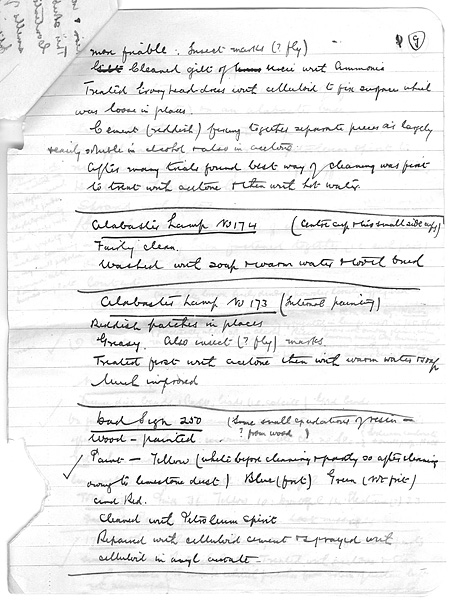 9
more friable. Insect marks (? fly)
Cleaned gilt of with Ammonia
Treated Ivory headdress with celluloid to fix surface which
was loose in places.
Cement (reddish) fixing together separate pieces is largely
readily soluble in alcohol & also in acetone
After many trials found best way of cleaning was first
to treat with acetone & then with hot water.
Alabaster Lamp No 174 (Centre cup & two small side cups)
Fairly clean.
Washed with soap & warm water & well dried
Alabaster Lamp No 173 (Internal painting)
Reddish patches in places
Greasy. Also insect (? fly) marks.
Treated first with acetone then with warm water & soap
Much improved
Bad Sign 250 (Some small exudations of resin -
? from wood)
Wood - painted
Paint - Yellow (white before cleaning & partly so after cleaning
owing to limestone dust) Blue (frit) Green (not frit)
and Red.
Cleaned with Petroleum Spirit
Repaired with celluloid cement & sprayed with
celluloid in amyl acetate -